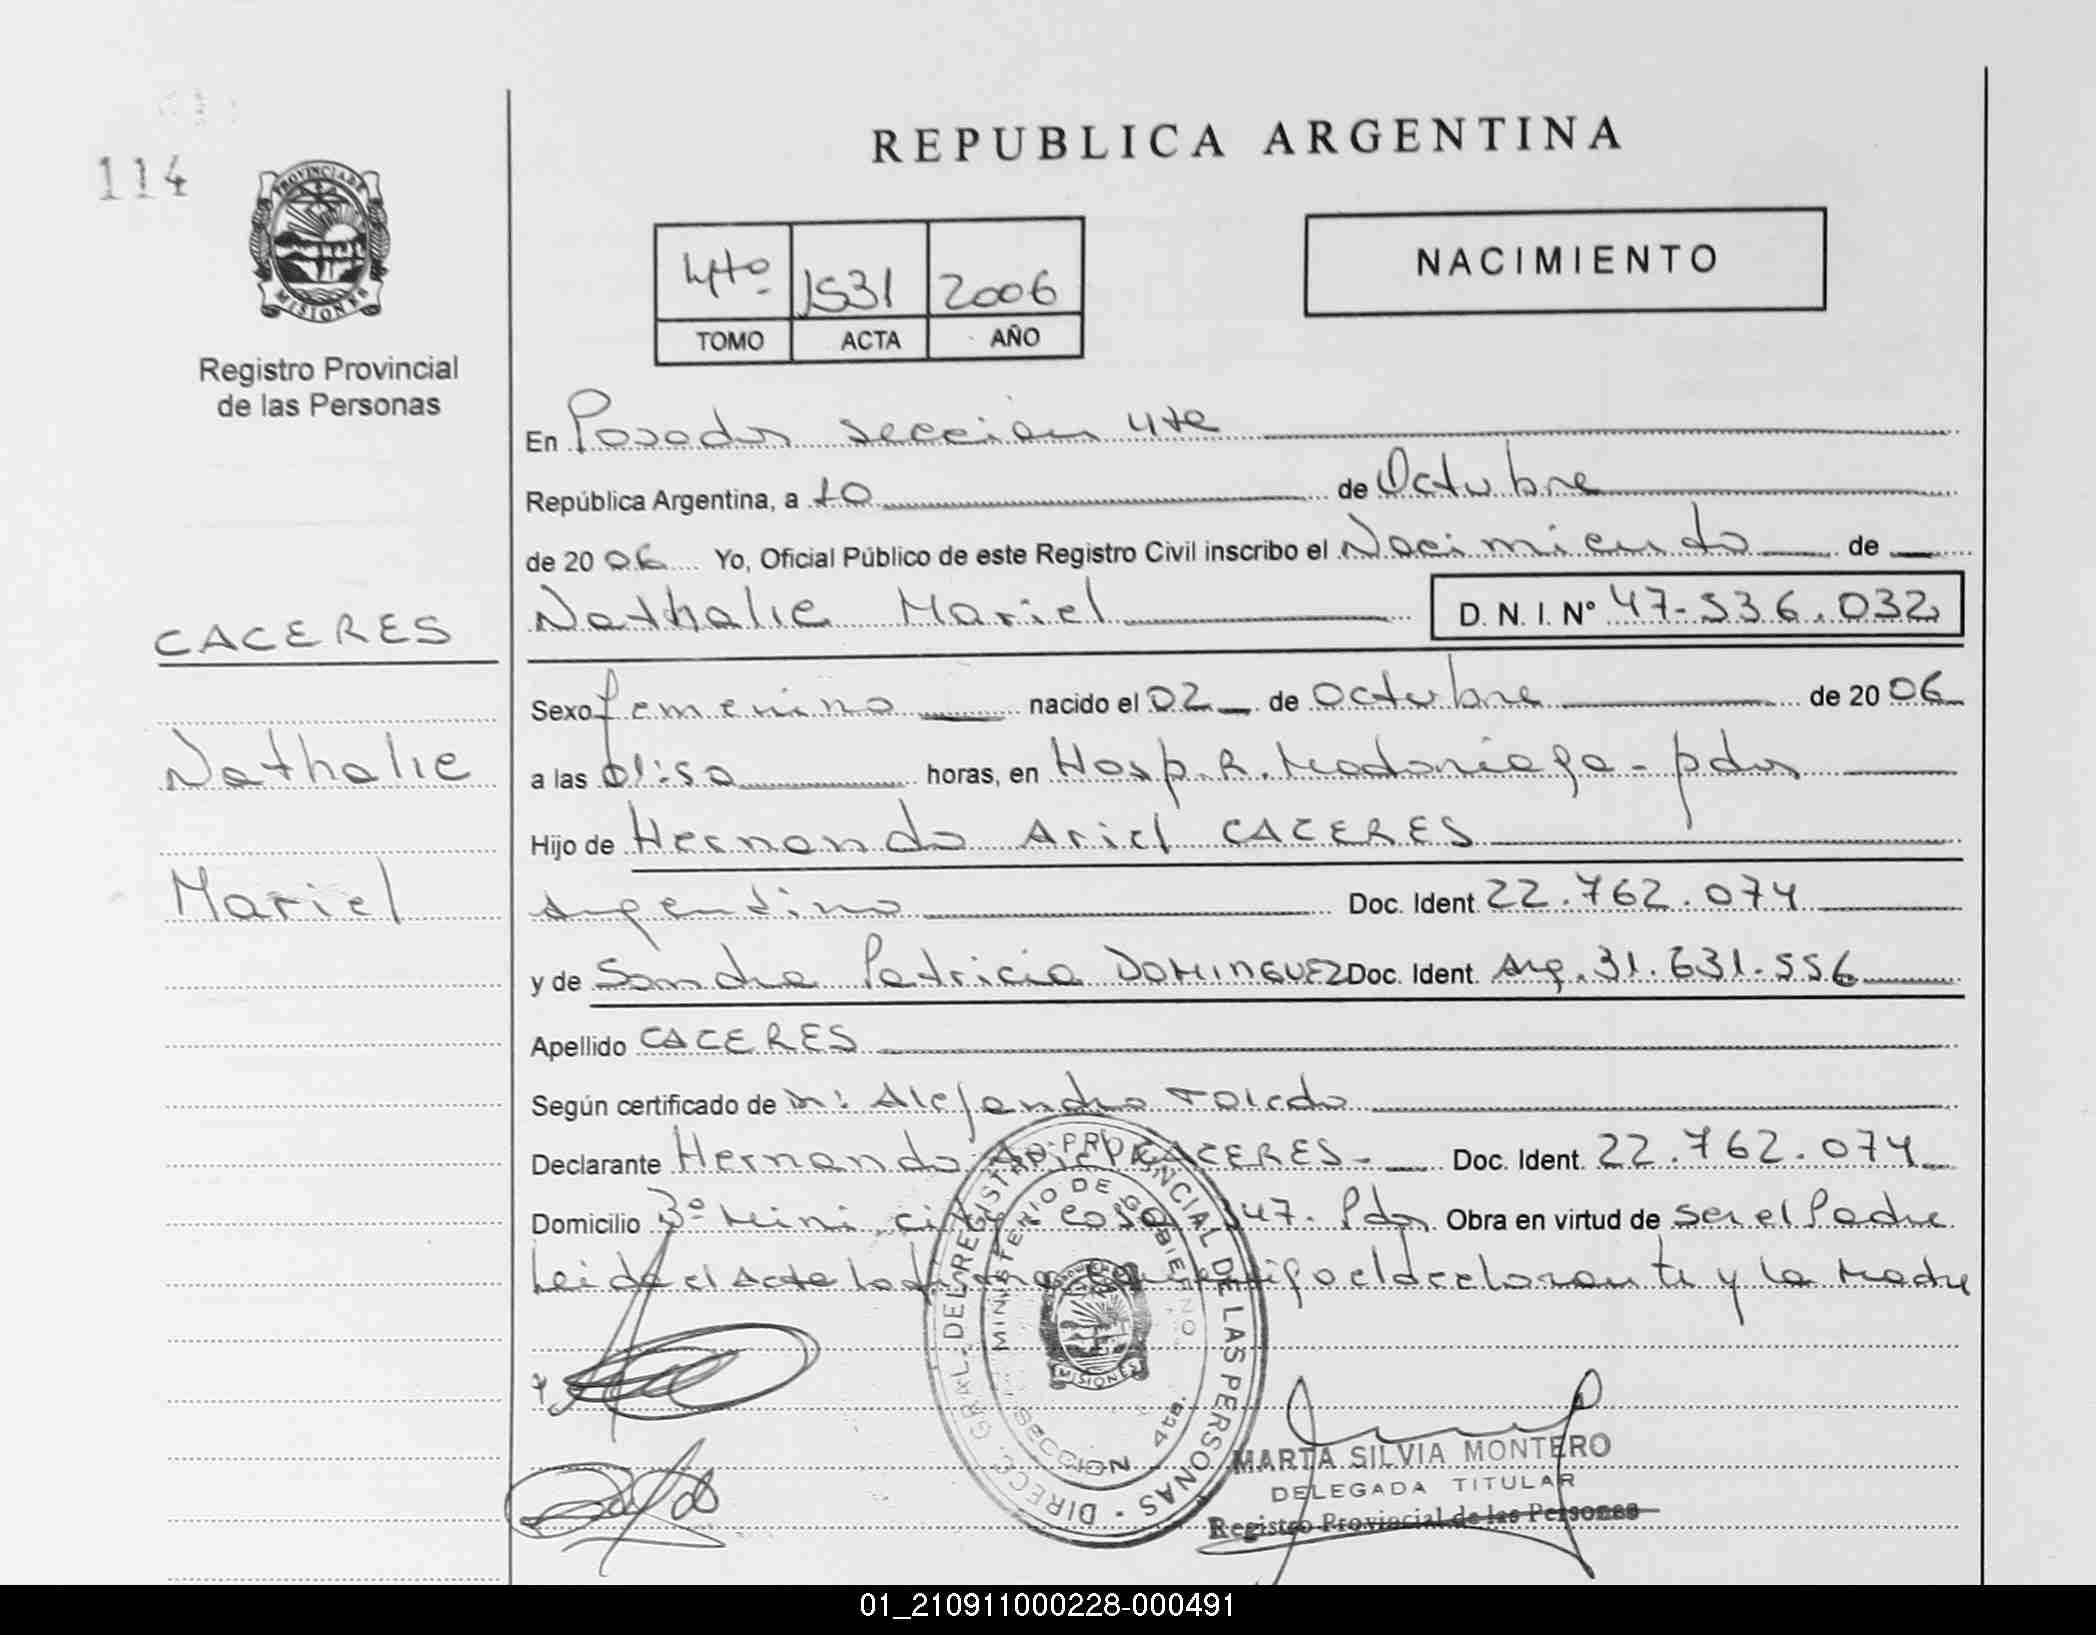 114
PROVINCIA DE
MISIONES
Registro Provincial
de las Personas
REPUBLICA ARGENTINA
4to 1531 2006
TOMO ACTA AÑO
NACIMIENTO
En Posadas sección 4ta
República Argentina, a 10 de Octubre
de 20 06 Yo, Oficial Público de este Registro Civil inscribo el Nacimiento de
CACERES
Nathalie Mariel D. N. I. N° 47-536.032
Sexo femenino nacido el 02 de Octubre de 20 06
Nathalie
a las 01:50 horas, en Hosp. R. Madariaga - pdas
Hijo de Hernando Ariel CACERES
Mariel
Argentino Doc. Ident. 22.762.074
y de Sandra Patricia DOMINGUEZ Doc. Ident. Arg. 31.631.556
Apellido CACERES
Según certificado de Dr: Alejandro Toledo
Declarante Hernando Ariel CACERES - Doc. Ident. 22.762.074
Domicilio 3° Mini city casa 347. Pdas Obra en virtud de ser el Padre
Leida el Acta la firma conmigo el declarante y la Madre
DIRECC. GRAL. DEL REGISTRO PROVINCIAL DE LAS PERSONAS
MINISTERIO DE GOBIERNO
MISIONES
SECCION 4ta.
MARTA SILVIA MONTERO
DELEGADA TITULAR
Registro Provincial de las Personas
01_210911000228-000491